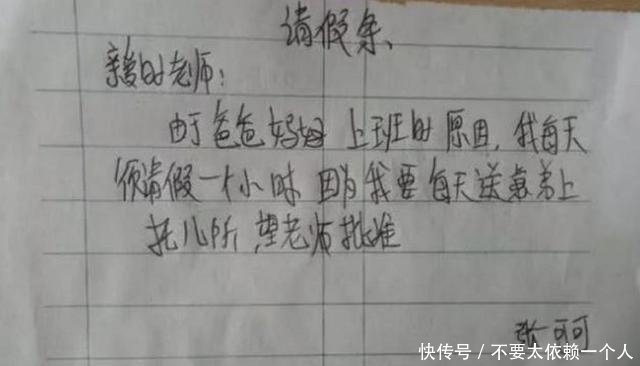 请假条、
亲爱的老师：
由于爸爸妈妈上班的原因，我每天
须请假一个小时因为我要每天送表弟上
托儿所，望老师批准
张可可
快传号／不要太依赖一个人